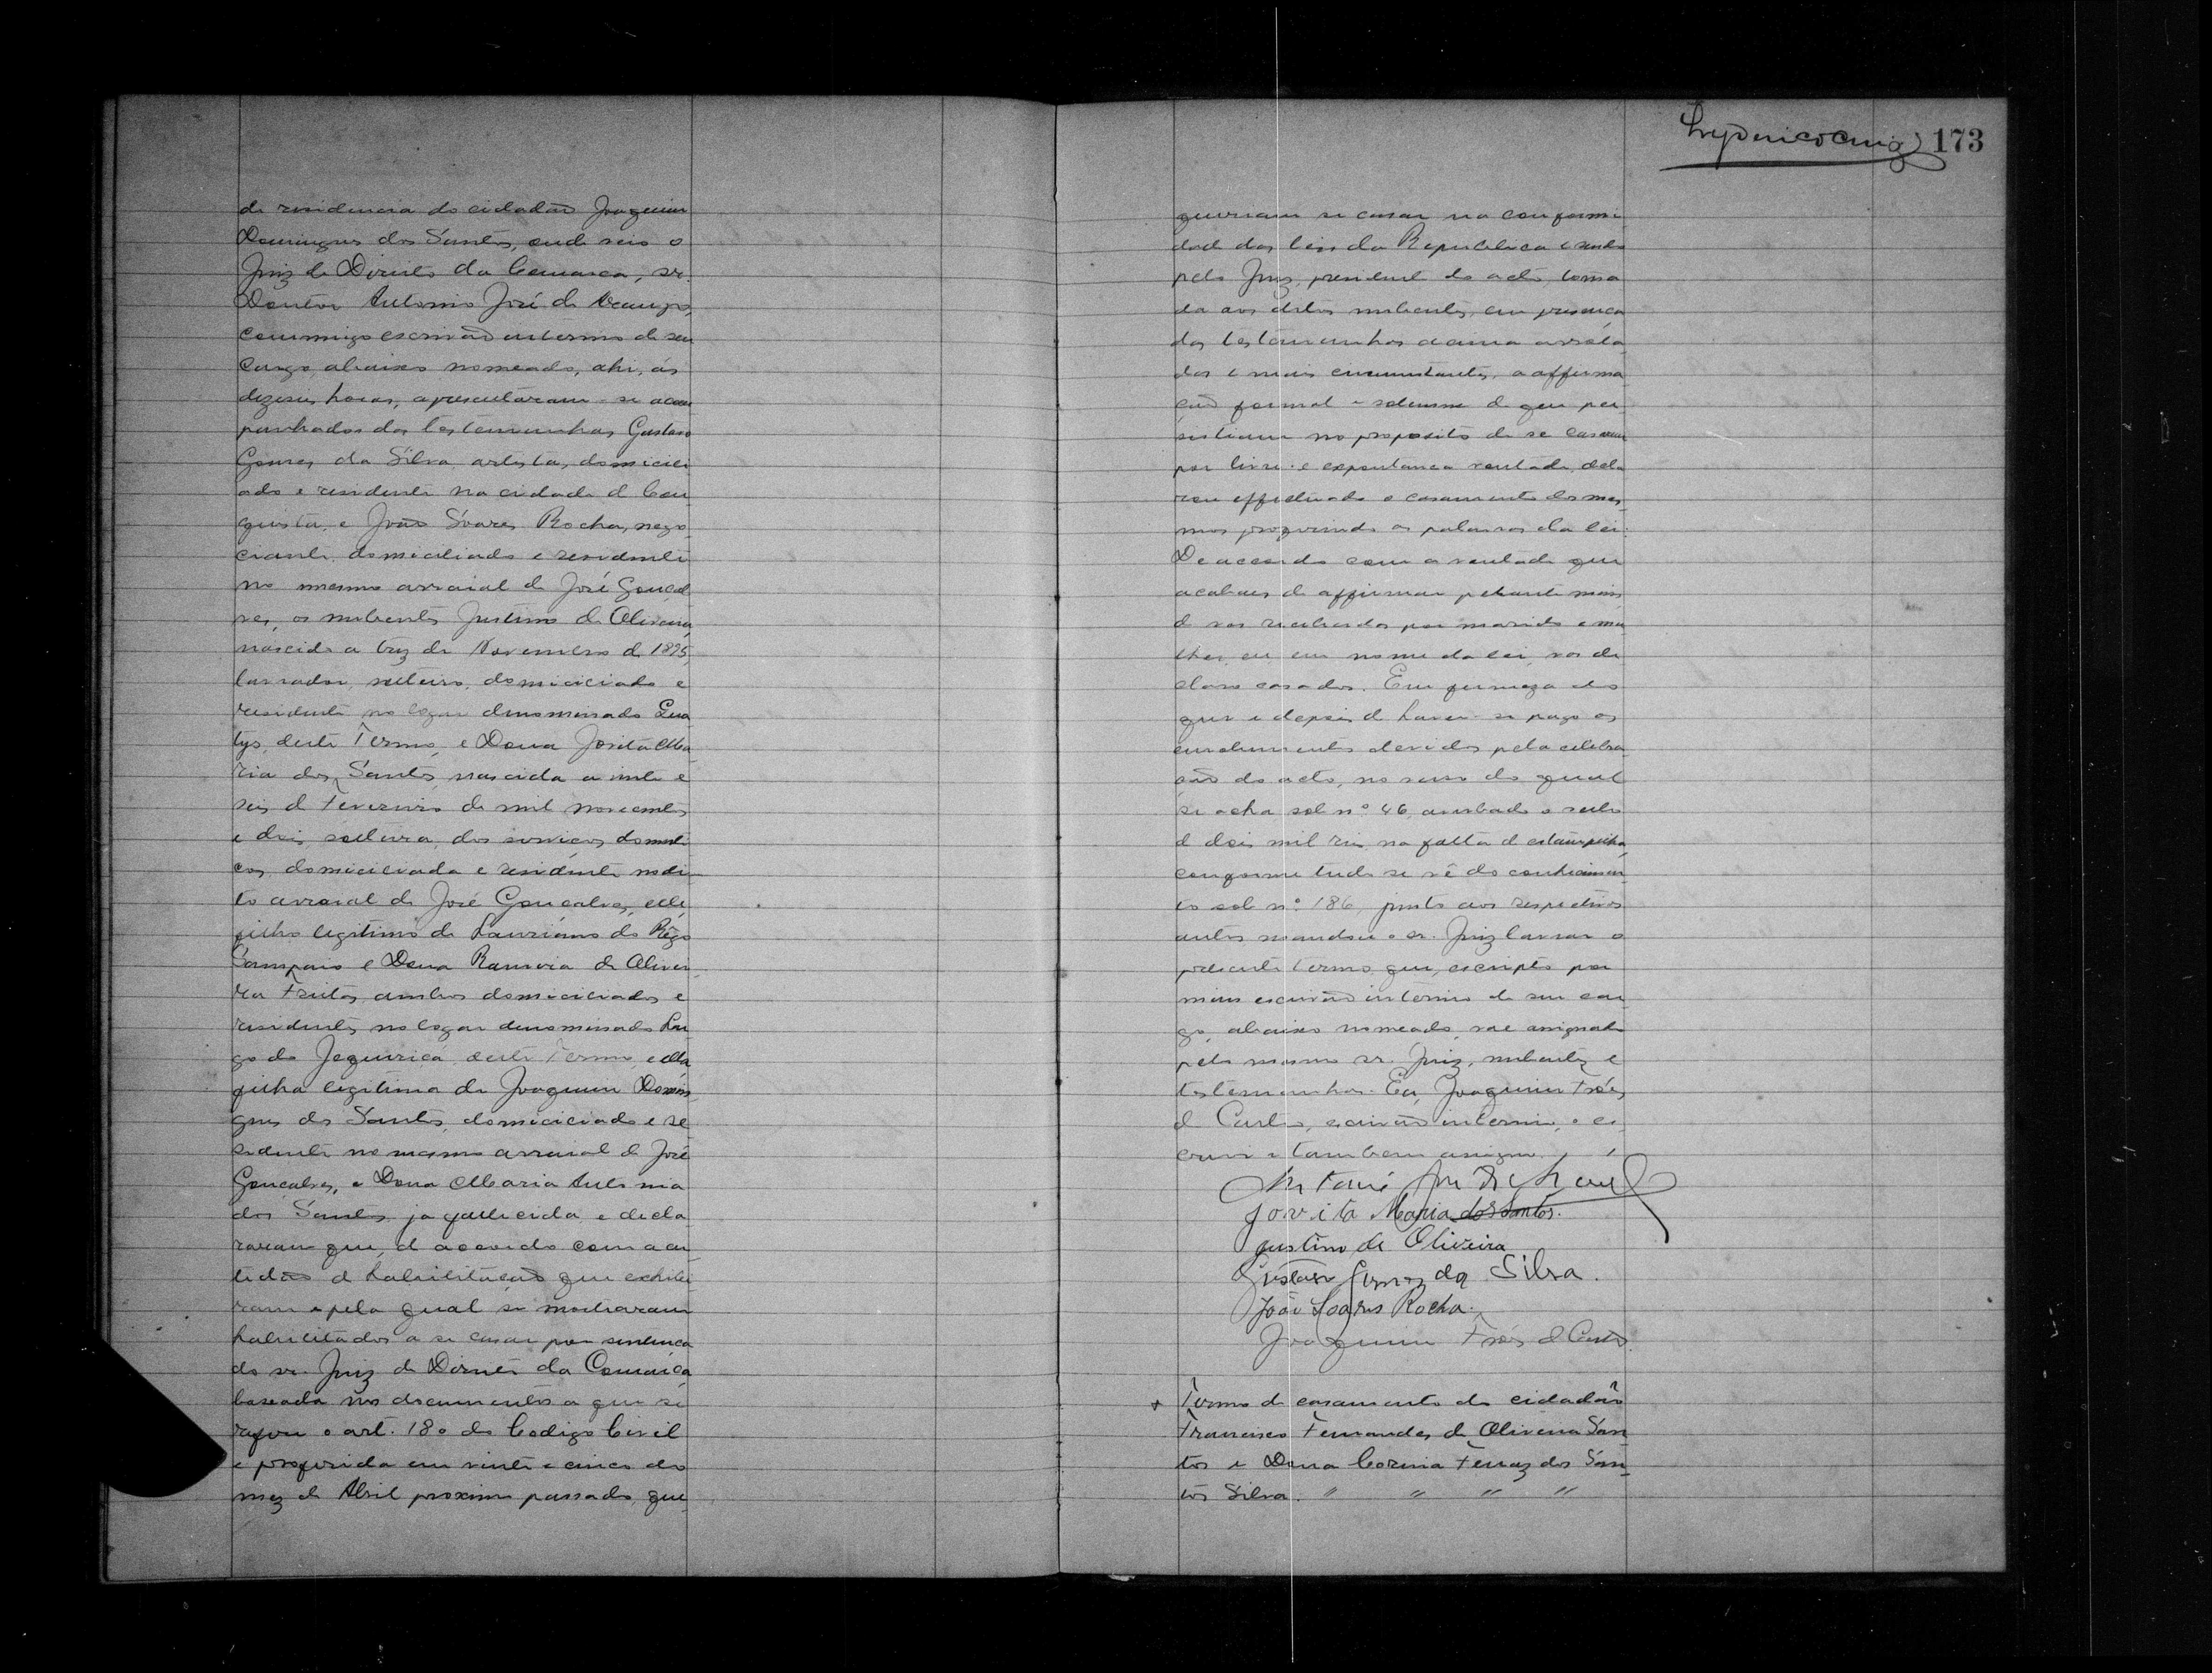 de residencia do cidadão Joaquim
Domingues dos Santos, onde veio o
Juiz de Direito da Comarca, sr.
Doutor Antonio José de Araujo,
commigo escrivão interino de seu
cargo abaixo nomeado, ahi, ás
dezeseis horas, apresentaram-se acom
panhados das testemunhas Gustavo
Gomes da Silva, artista, domicili
ado e residente na cidade de Con
quista, e João Soares Rocha, nego
ciante, domiciliado e residente
no mesmo arraial de José Gonçal
ves, os nubentes Justino de Oliveira,
nascido a trez de Novembro de 1895,
lavrador, solteiro, domiciliado e
residente no logar denominado
deste Termo, e Dona Jovita Ma
ria dos Santos, nascida a vinte e
seis de Fevereiro de mil novecentos
e dois, solteira, dos serviços domesti
cos, domiciliada e residente no di
to arraial de José Gonçalves, elle
filho legitimo de Lauriano do Rêgo
Sampaio e Dona Ramira de Olivei
ra Freitas, ambos domiciliados e
residentes no logar denominado La
go do Jequiriça, deste Termo, e ella
filha legitima de Joaquim Domin
gues dos Santos, domiciliado e re
sidente no mesmo arraial de José
Gonçalves, e Dona Maria Antonia
dos Santos, ja fallecida, e decla
raram que, de accordo com a cer
tidão de habilitação que exhibi
ram e pela qual se mostraram
habilitados a se casar por sentença
do sr. Juiz de Direito da Comarca
baseada nos documentos a que se
refere o art. 180 do Codigo Civil
e proferida em vinte e cinco do
mez de Abril proximo passado, que
173
queriam se casar na conformi
dade das leis da Republica e sendo
pelo Juiz, presidente do acto, toma
da aos ditos nubentes, em presença
das testemunhas acima arrola
das e mais circumstantes, a affirma
ção formal e solemne de que per
sistiam no proposito de se casarem
por livre e expontanea vontade, decla
rou effectuado o casamento dos mes
mos proferindo as palavras da lei:
De accordo com a vontade que
acabaes de affirmar perante mim,
de vos receberdes por marido e mu
lher, eu, em nome da lei, vos de
claro casados. Em firmeza do
que e depois de haver-se pago os
emolumentos devidos pela celebra
ção do acto, no verso do qual
se acha sob nº 46, averbado o sello
de dois mil reis, na falta de estampilha,
conforme tudo se vê do conhecimen
to sob nº 186, junto aos respectivos
autos mandou o sr. Juiz lavrar o
presente termo, que, escripto por
mim escrivão interino de seu car
go, abaixo nomeado, vae assignado
pelo mesmo sr. Juiz, nubentes e
testemunhas. Eu, Joaquim Fróes
de Castro, escrivão interino, o es
crevi e tambem assigno.
Jovita Maria dos Santos.
Justino de Oliveira
Gustavo Gomes da Silva.
João Soares Rocha.
Joaquim Fróes de Castro.
Termo de casamento do cidadão
Francisco Fernandes de Oliveira San
tos e Dona Corina Ferraz dos San
tos Silva. " " " "